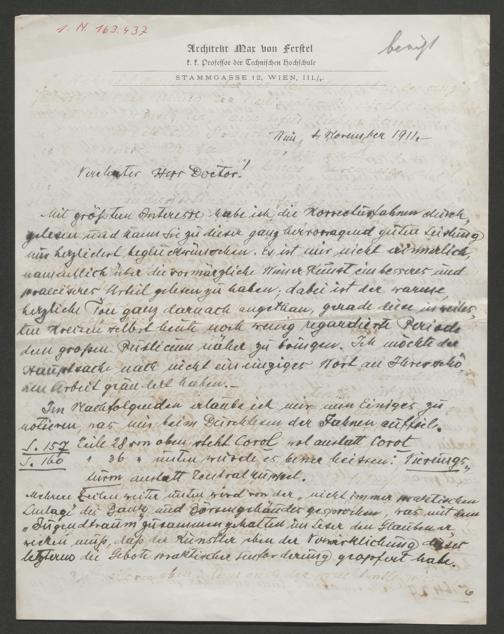 I. N. 163.437
Architekt Max von Ferstel
k. k. Professor der Technischen Hochschule
STAMMGASSE 12, WIEN, III./1.
Wien, 4. November 1911.–
Verehrter Herr Doctor!
Mit größten Interesse habe ich die Korrecturfahnen durch-
gelesen und kann Sie zu dieser ganz hervorragend guten Leistung
nur herzlichst beglückwünschen. Es ist mir nicht erinnerlich
über die vormärzliche Wiener Kunst ein besseres und
Urteil gelesen zu haben, dabei ist der warme
herzliche Ton ganz darnach angethan, gerade diese in weites-
ten Kreisen selbst heute noch wenig regardierte Periode
dem großen Publicum näher zu bringen. Ich möchte der
Hauptsache nach nicht ein einziges Wort an Ihrer schö-
nen Arbeit geändert haben.–
Im Nachfolgenden erlaube ich mir nun Einiges zu
notieren, was mir beim Durchlesen der Fahnen auffiel.
S. 157 Zeile 28 von oben steht Corol wol anstatt Corot
S. 160 " 36 " unten würde es besser heissen: Vierungs-
turm anstatt Zentralkuppel.
Mehrere Zeilen weiter unten wird von der "nicht immer praktischen
Anlage" des Bank- und Börsengebäudes gesprochen, was mit dem
"Jugendtraum" zusammengehalten im Leser den Glauben er-
wecken muß, daß der Künstler eben der Verwirklichung dieses
letzteren die Gebote praktischer Anforderung geopfert habe.